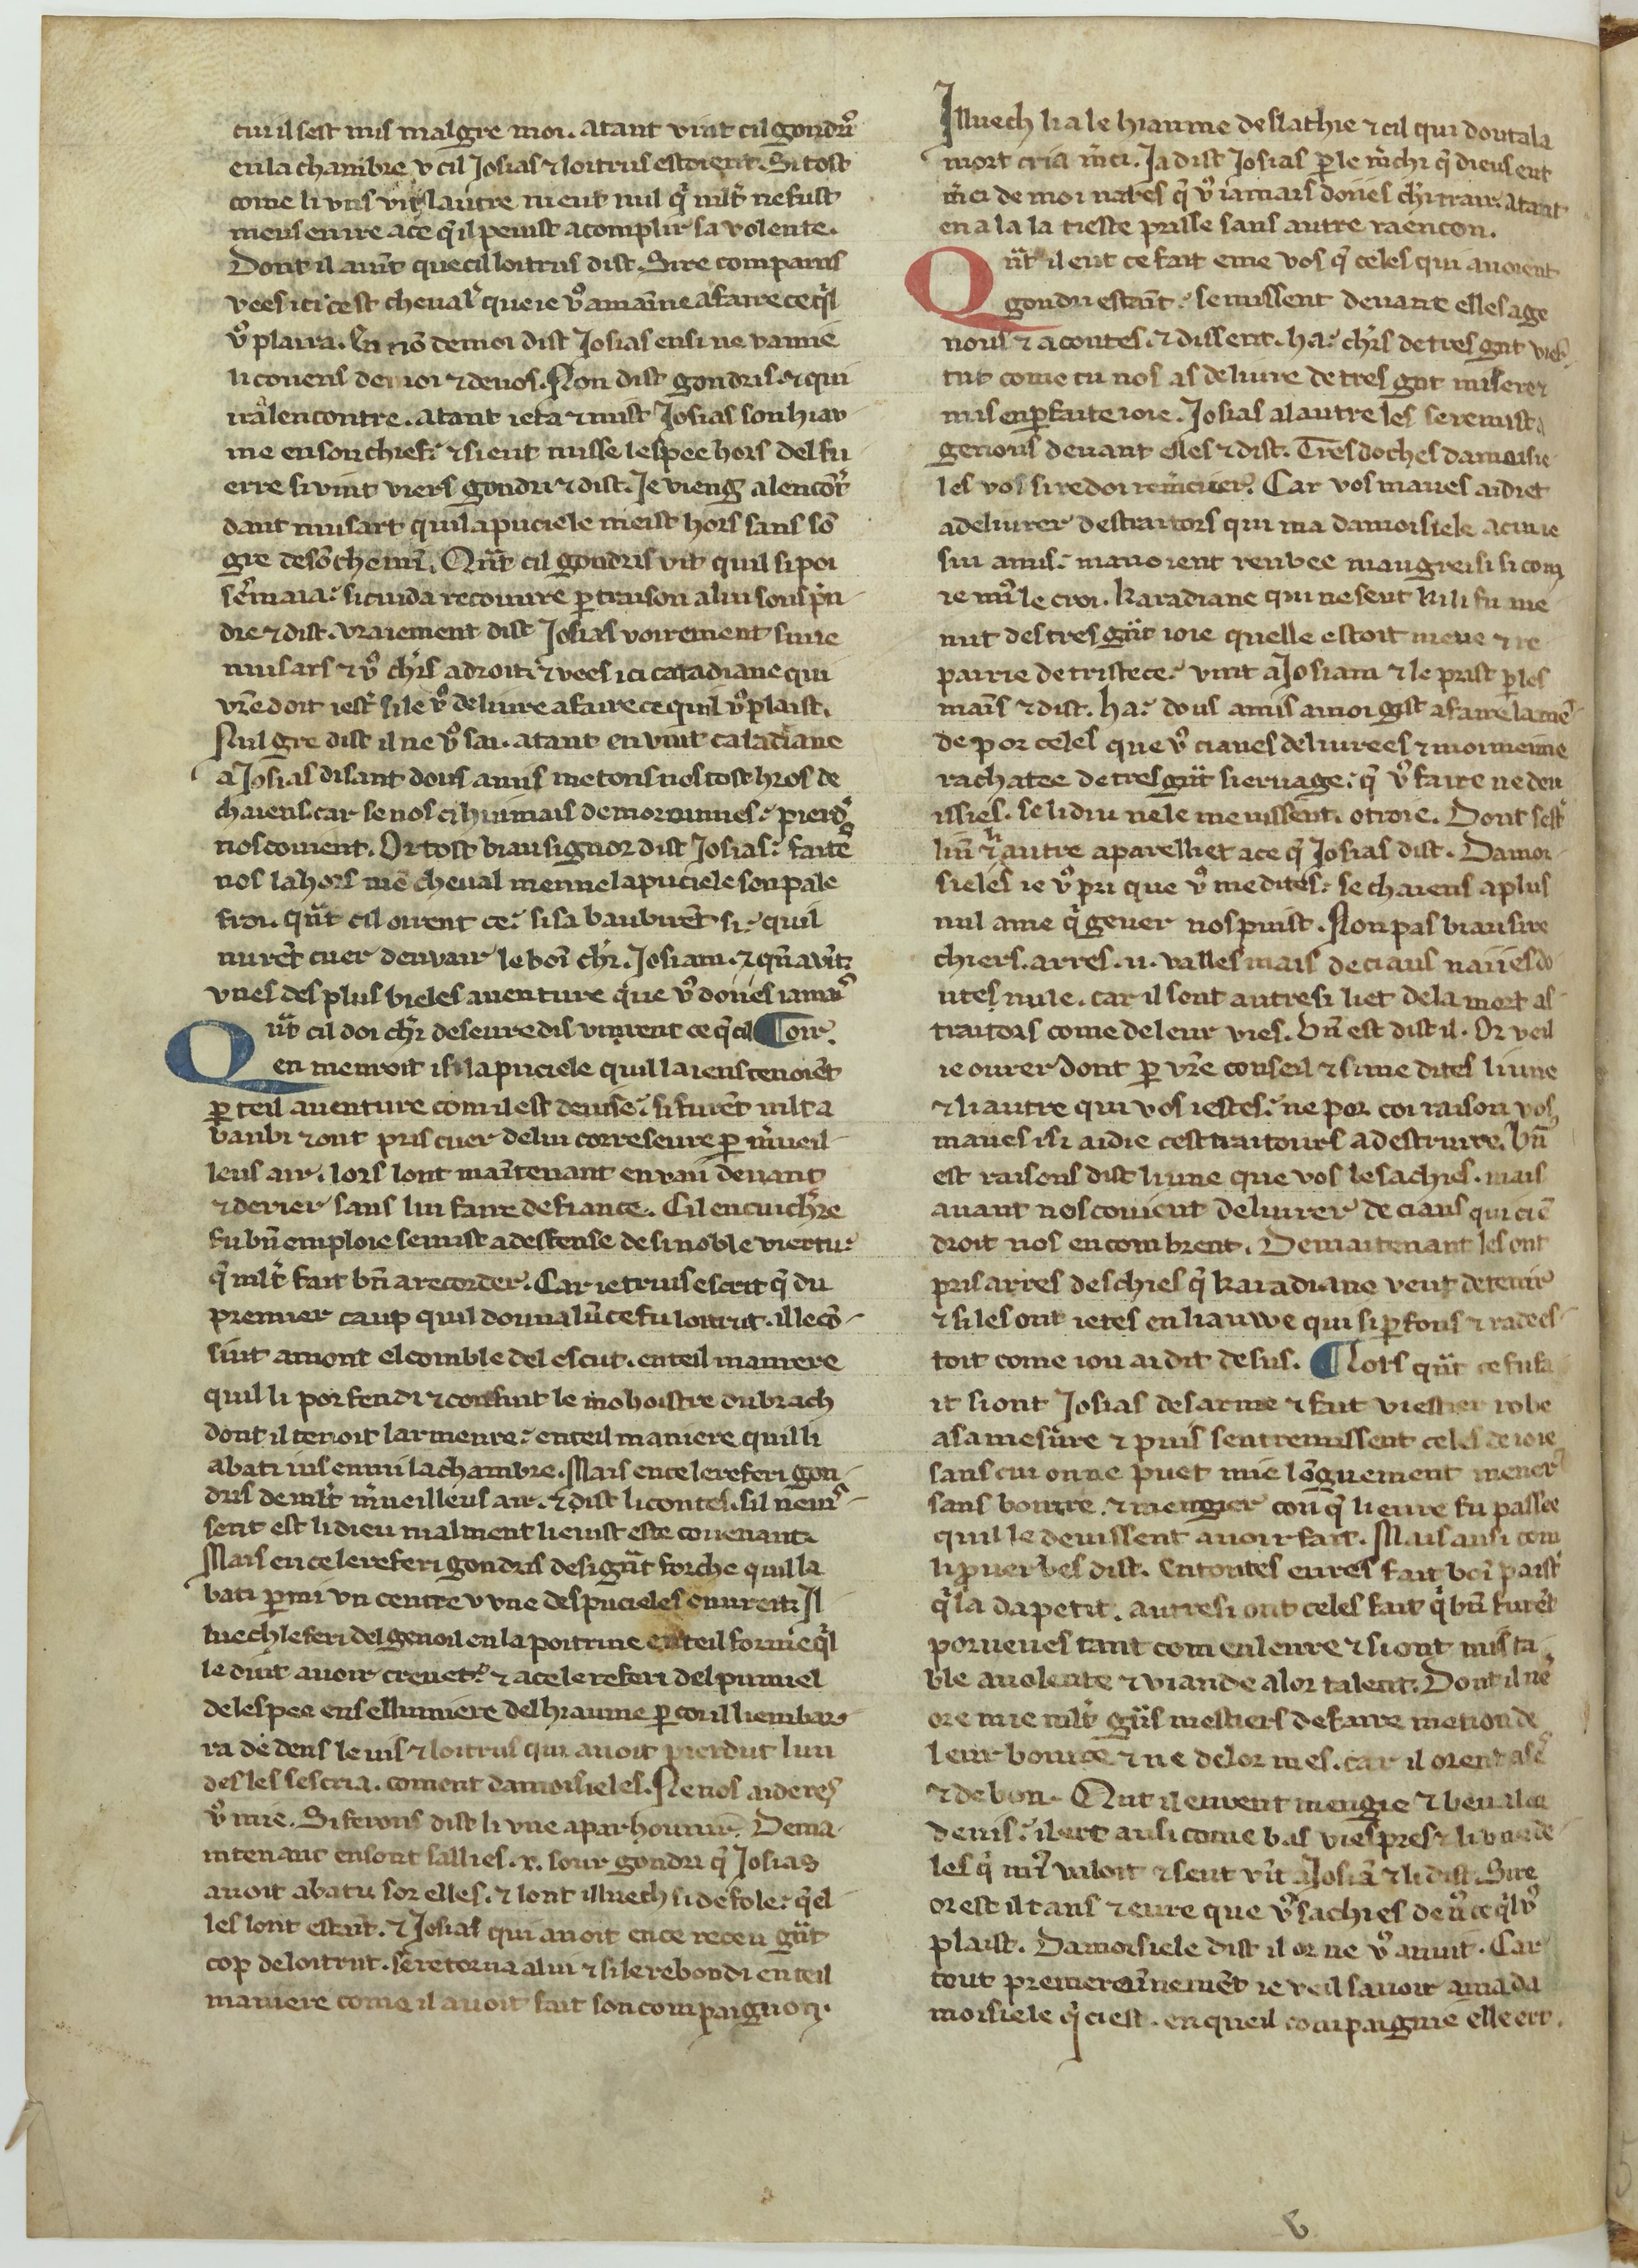 cui il sest mis malgre moi. Atant vint cil gondrˀ
en la chambre v cil Josias ⁊ loitrus estoient. Si tost
come li vns vit lautre nieut nul qͥ mlt̾ ne fust
meus en ire a ce qͥl peuist acomplir sa volente.
Dont il auīt que cil loitrus dist. Sire compains
vees ici cest cheualˀ que ie vˀ amaine a faire ce qͥl
vˀ plaira. En nō de moi dist Josias ensi ne va mie
li couens de moi ⁊ de vos. Non dist gondris. ⁊ qui
ira alencontre. Atant ieta ⁊ mist Josias son hiau
me en son chief. ⁊ si eut misse lespee hors del fu
erre si vint viers gondri ⁊ dist. Je vieng alencōtˀ
dant musart qui la puciele meist hors sans sō
gre de sō chemin. Qn̄t cil gondris vit quil si poi
sesmaia. si cuida recouure ꝑ traison a lui souspn̄
dre ⁊ dist. vraiement dist Josias voirement sui ie
musars ⁊ vˀ chr̄s a droit. ⁊ vees ici caradiane qui
vr̄e doit iestˀ si le vˀ deliure a faire ce quil vˀ plaist.
Nul gre dist il ne vˀ sai. Atant en vint caradiane
a Josias disant dous amis metons nos tost hros de
chaiens. car se nos ci huimais demorummes. pierdˀ
nos couient. Or tost biau signor dist Josias. faite
nos la hors mē cheual menne la puciele son pale
froi. qn̄t cil oirent ce. si sabaubirēt si. quil
nurēt cuer denvair le bon chr̄. Josiam. ⁊ qn̄ auīt.
vnes des plus bieles auenture que vˀ oues iamaiˀ
Qn̄t cil doi chr̄ deseure dis virirent ce qͥ cil Coir.
en menroit isi la puciele quil laiens tenoiēt
ꝑ teil auenture com il est deuise. si furēt mlt a
baubi ⁊ ont pris cuer de lui corre seure ꝑ mˀueil
leus air. lors lont maītenant envaii deuant
⁊ derier sans lui faire defiance. Cil en cui chlr̄e
fu bn̄ emploie se mist a desfense de si noble viertu.
qͥ mlt̾ fait bn̄ a recorder. Car ie truis escrit qͥ du
premier caup quil donna lū ce fu loitrut. il le cō
siut amont el comble del escut. en teil maniere
quil li porfendi ⁊ confuit le mohoistre du brach
dont il tenoit larmeure. en teil maniere quil li
abati ius enmi la chambre. Mais en ce le referi gon
dris de mlt̾ mˀueilleus air. ⁊ dist li contes. sil neuisˀ
sent est li dieu malment li euist este couenant.
Mais en ce le referi gondris de si grāt forche quil la
bati ꝑmi vn centre v vne des pucieles enureit. Il
luech le feri del genoil en la poitrine en teil forme qͥl
le duit auoir creuet. ⁊ a ce le referi del pumiel
de lespee ens el lumiere del hiaume ꝑ coi il li embar
ra dedens le vis ⁊ loitrus qui auoit pierdut lun
des les sescria. coment damoisieles. Ne nos aideres
vˀ mie. Si ferons dist li vne a par honnir. Dema
intenant en sont sallies. x. sour gondri qͥ Josias
auoit abatu sor elles. ⁊ lont illuech si defole. qͥl
les lont estaīt. ⁊ Josias qui auoit en ce receu grāt
cop de loitrut. se retorna a lui ⁊ si le rebondi en teil
maniere come il auoit fait son compaignon.
Illuech li a le hiaume deslachie ⁊ cil qui douta la
mort cria mˀci. Ja dist Josias ꝑ le mˀchi qͥ dieus ent
mˀci de moi nares qͥ vˀ iamais doues chr̄ trair. Atant
en a la la tieste prisse sans autre raencon.
Qn̄t il eut ce fait eme vos qͥ celes qui auoient
gondri estaīt. se missent deuant elles age
nous ⁊ a coutes. ⁊ dissent. ha. chr̄s de tres grāt vier
tut come tu nos as deliure de tres grāt misere ⁊
mis en ꝑfaite ioie. Josias a lautre les se remist a
genous deuant elles ⁊ dist. Tres doches damoisie
les vos si redoi remˀcier. Car vos maues aidiet
a deliurer des traitors qui ma damoisiele a cui ie
sui amis. mauoient reubee maugrei si si com
ie miˀ le croi. Karadiane qui ne seut ki li fu me
nut des tres grāt ioie quelle estoit meue ⁊ re
pairie de tristece. vint a Josiam ⁊ le prist ꝑ les
mais ⁊ dist. ha. dous amis a moi gist a faire lamē
de por celes que vˀ ci aues deliurees ⁊ moi meime
rachatee de tres grāt siervage. qͥ vˀ faire ne deu
issies. se li diu ne le meuissent. otroie. Dont sestˀ
liū ⁊ lautre aparelliet a ce qͥ Josias dist. Damoi
sieles ie vˀ pri que vˀ me dites. se chaiens a plus
nul ame qͥ greuer nos puist. Non pas biau sire
chiers. arres. ii. valles mais de ciaus naiies do
utes nule. car il sont autresi liet de la mort as
traitors come de leur vies. Bn̄ est dist il. Or veil
ie ourer dont ꝑ vr̄e conseil ⁊ si me dites li une
⁊ li autre qui vos iestes. ne por coi raison vos
maues isi aidie cest traitours a destruire. Bn̄
est raisons dist li une que vos le sachies. mais
auant nos couient deliurer de ciaus qui ciē
droit nos encombrent. Demaitenant les ont
pris arres des chies qͥ Karadiane veut detenir
⁊ si les ont ietes en liauwe qui si ꝑfons ⁊ rade es
toit come iou ai dit desus. Lors qn̄t ce fu fa
it si ont Josias desarme ⁊ fait viestier robe
a sa mesure ⁊ puis sentremissent celes de ioie
sans cui on ne puet mie longuement mener
sans boiure ⁊ mengier con qͥ lieure fu passee
quil le deuissent auoir fait. Mais ausi com
li ꝓuerbes dist. En toutes eures fait bon paistˀ
qͥ la dapetit. autresi ont celes fait qͥ bn̄ furēt
porueues tant com en leure ⁊ si ont mis ta
ble a volente ⁊ viande a lor talent. Dont il nē
ore mie mlt̾ grās mestiers de faire mention de
leur boiure ⁊ ne de lor mes. car il orent asˀ
⁊ de bon. Qn̄t il eurent mengie ⁊ beu a lor
deuis. il ert ausi come bas viespres ⁊ li vne de
les qͥ miˀ valoit ⁊ seut vīt a Josiā ⁊ li dist. Sire
or est il tans ⁊ eure que vˀ sachies de nˀ ce qͥl vˀ
plaist. Damoisiele dist il or ne vˀ anuit. Car
tout premierainemēt ie veil sauoir a ma da
moisiele qͥ ci est. en queil compaignie elle ert.